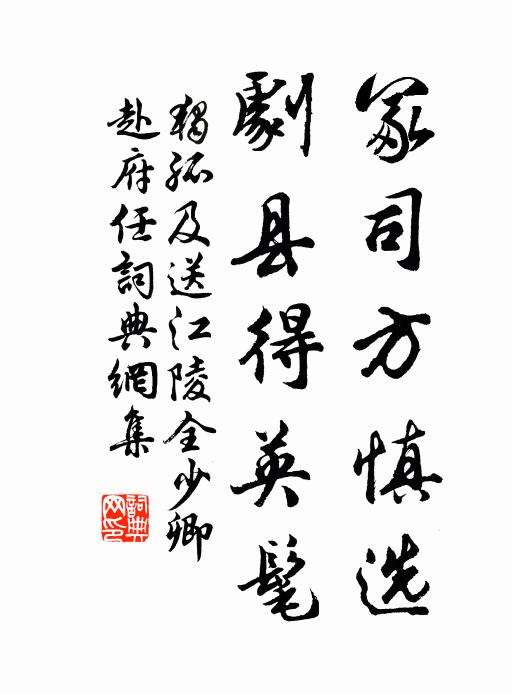 冢司方慎选
劇县得英髦
獨孤及送江陵全少卿
赴府任詞典網集
詞典网印